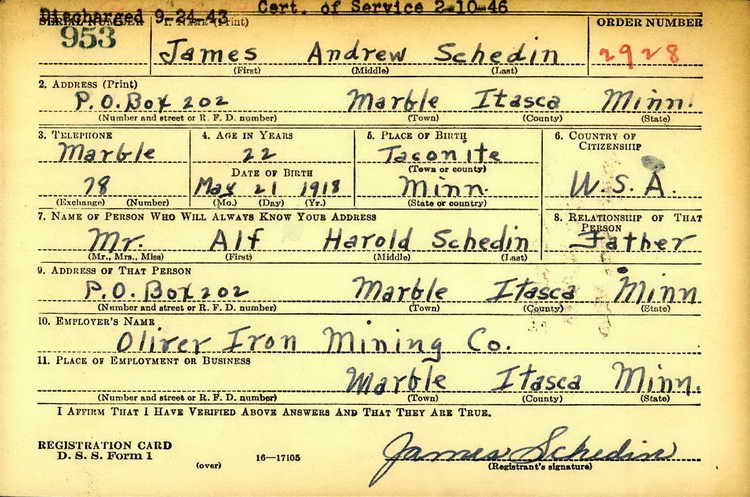 Discharged 9-24-43 Cert. of Service 2-10-46
SERIAL NUMBER 1. NAME (Print) ORDER NUMBER
953 James Andrew Schedin 2928
(First) (Middle) (Last)
2. ADDRESS (Print)
P.O. Box 202 Marble Itasca Minn.
(Number and street or R. F. D. number) (Town) (County) (State)
3. TELEPHONE 4. AGE IN YEARS 5. PLACE OF BIRTH 6. COUNTRY OF CITIZENSHIP
Marble 22 Taconite
DATE OF BIRTH (Town or county)
78 May 21 1918 Minn. U.S.A.
(Exchange) (Number) (Mo.) (Day) (Yr.) (State or country)
7. NAME OF PERSON WHO WILL ALWAYS KNOW YOUR ADDRESS 8. RELATIONSHIP OF THAT PERSON
Mr. Alf Harold Schedin Father
(Mr., Mrs., Miss) (First) (Middle) (Last)
9. ADDRESS OF THAT PERSON
P.O. Box 202 Marble Itasca Minn
(Number and street or R. F. D. number) (Town) (County) (State)
10. EMPLOYER'S NAME
Oliver Iron Mining Co.
11. PLACE OF EMPLOYMENT OR BUSINESS
Marble Itasca Minn.
(Number and street or R. F. D. number) (Town) (County) (State)
I AFFIRM THAT I HAVE VERIFIED ABOVE ANSWERS AND THAT THEY ARE TRUE.
REGISTRATION CARD
D. S. S. Form 1 (over) 16—17105 James Schedin
(Registrant's signature)